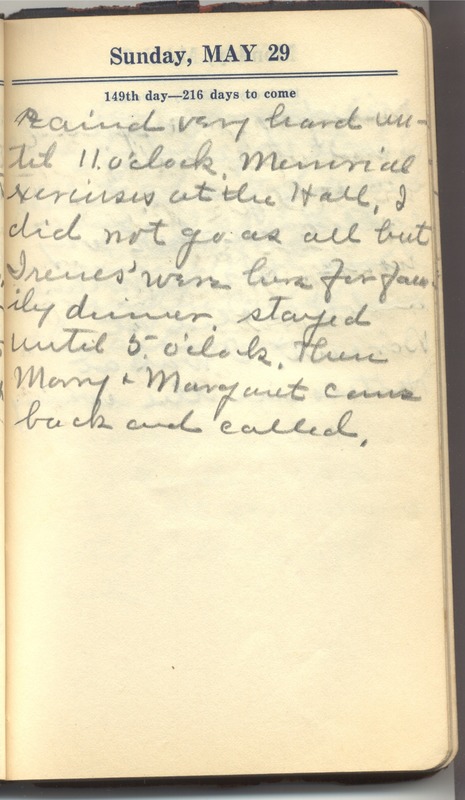 Sunday, MAY 29
149th day—216 days to come
Raind very hard un-
til 11 o'clock. Memorial
xercises at the Hall, I
did not go as all but
Irenes' were here for fam-
ily dinner. stayed
until 5 o'clock. Then
Morry & Margaret came
back and called.